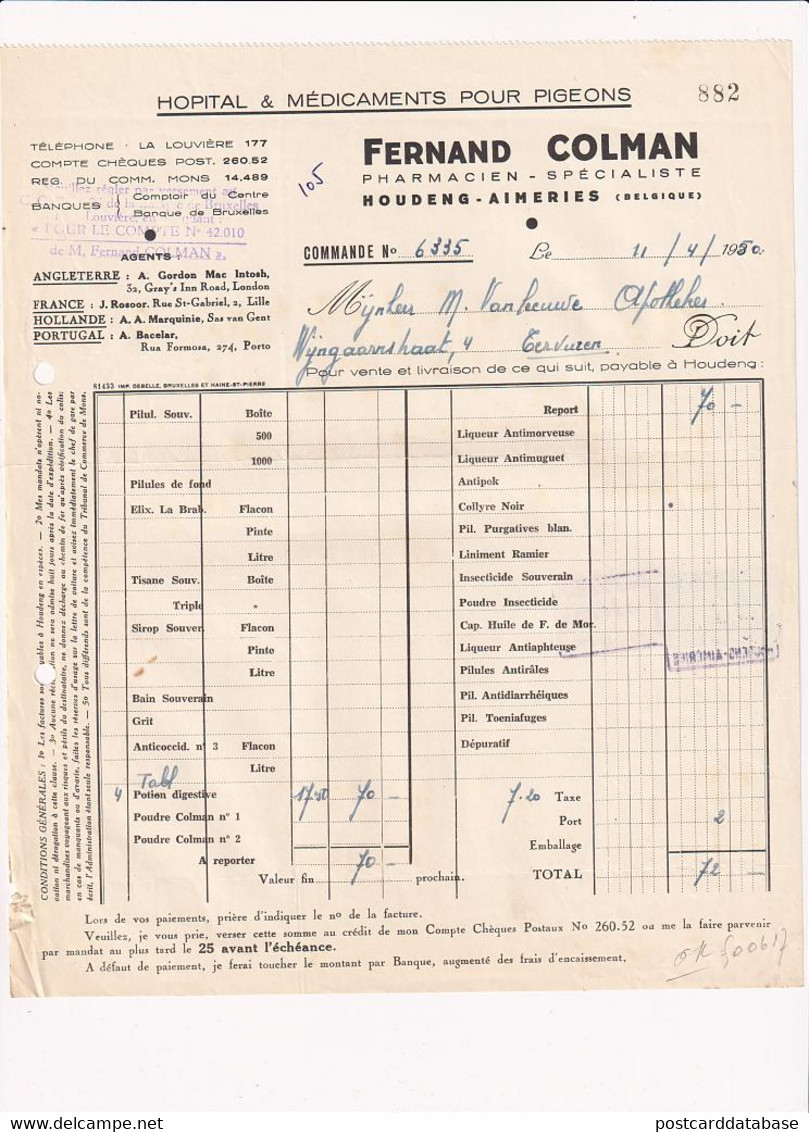 HOPITAL & MÉDICAMENTS POUR PIGEONS
882
TÉLÉPHONE : LA LOUVIÈRE 177
COMPTE CHÈQUES POST. 260.52
REG. DU COMM. MONS 14.489
BANQUES { Comptoir du Centre
Banque de Bruxelles
« POUR LE COMPTE No 42.010
de M. Fernand COLMAN
105
FERNAND COLMAN
PHARMACIEN - SPÉCIALISTE
HOUDENG-AIMERIES (BELGIQUE)
COMMANDE No 6335
Le 11 / 4 / 1950.
AGENTS :
ANGLETERRE : A. Gordon Mac Intosh,
32, Gray's Inn Road, London
FRANCE : J. Rosoor. Rue St-Gabriel, 2, Lille
HOLLANDE : A. A. Marquinie, Sas van Gent
PORTUGAL : A. Bacelar,
Rua Formosa, 274, Porto
Mijnheer M. Vanleeuwe Apotheker
Wijngaarnshaat, 4 Tervuren
Doit
Pour vente et livraison de ce qui suit, payable à Houdeng :
81493 IMP. DEBELLE, BRUXELLES ET HAINE-ST-PIERRE
Pilul. Souv. Boîte
500
1000
Pilules de fond
Elix. La Brab. Flacon
Pinte
Litre
Tisane Souv. Boîte
Triple "
Sirop Souver. Flacon
Pinte
Litre
Bain Souverain
Grit
Anticoccid. n° 3 Flacon
Litre
Tabl
4 Potion digestive 17.50 70 -
Poudre Colman n° 1
Poudre Colman n° 2
A reporter 70 -
Valeur fin prochain.
Report 70 -
Liqueur Antimorveuse
Liqueur Antimuguet
Antipok
Collyre Noir
Pil. Purgatives blan.
Liniment Ramier
Insecticide Souverain
Poudre Insecticide
Cap. Huile de F. de Mor.
Liqueur Antiaphteuse
Pilules Antirâles
Pil. Antidiarrhéiques
Pil. Toeniafuges
Dépuratif
7.20 Taxe
Port 2
Emballage
TOTAL 72 -
CONDITIONS GÉNÉRALES : 1o Les factures sont payables à Houdeng en espèces. — 2o Mes mandats n'opèrent ni novation ni dérogation à cette clause. — 3o Aucune réclamation ne sera admise huit jours après la date d'expédition. — 4o Les
marchandises voyageant aux risques et périls du destinataire, ne donnez décharge au chemin de fer qu'après vérification du colis;
en cas de manquants ou d'avarie, faites les réserves d'usage sur la lettre de voiture et avisez immédiatement le chef de gare par
écrit, l'Administration étant seule responsable. — 5o Tous différends sont de la compétence du Tribunal de Commerce de Mons.
Lors de vos paiements, prière d'indiquer le no de la facture.
Veuillez, je vous prie, verser cette somme au crédit de mon Compte Chèques Postaux No 260.52 ou me la faire parvenir
par mandat au plus tard le 25 avant l'échéance.
A défaut de paiement, je ferai toucher le montant par Banque, augmenté des frais d'encaissement.
postcarddatabase